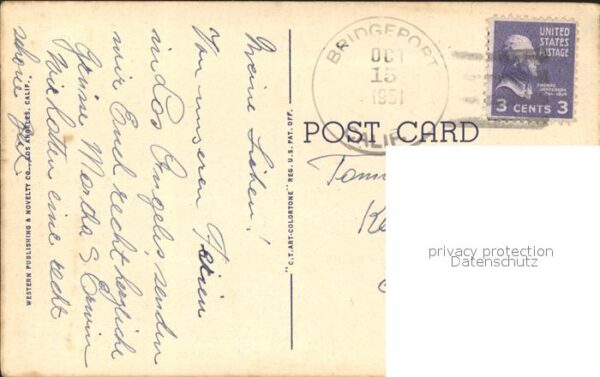 Meine Lieben!
Von unseren Ferien
in Los Angeles senden
wir Euch recht herzliche
Grüsse Martha & Erwin
Wir hatten eine recht
schöne
WESTERN PUBLISHING & NOVELTY CO., LOS ANGELES, CALIF.
"C.T. ART-COLORTONE" REG. U.S. PAT. OFF.
POST CARD
BRIDGEPORT
OCT
15
1951
CALIF.
UNITED
STATES
POSTAGE
THOMAS
JEFFERSON
3 CENTS 3
privacy protection
Datenschutz